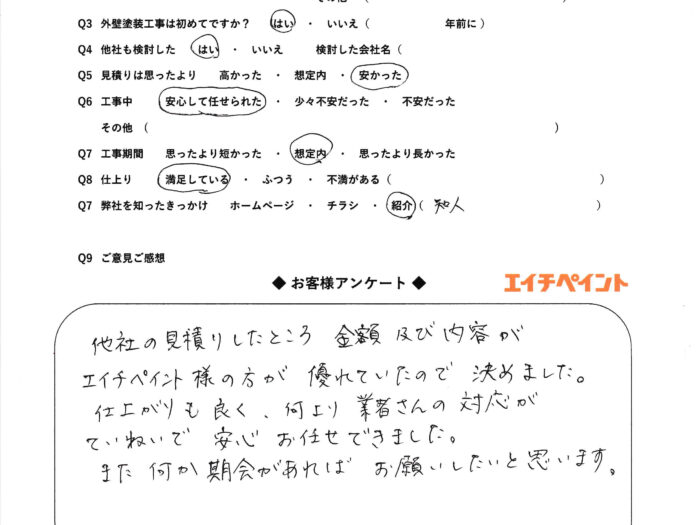 その他 (
Q3 外壁塗装工事は初めてですか? はい ・ いいえ ( 年前に )
Q4 他社も検討した はい ・ いいえ 検討した会社名 (
Q5 見積りは思ったより 高かった ・ 想定内 ・ 安かった
Q6 工事中 安心して任せられた ・ 少々不安だった ・ 不安だった
その他 ( )
Q7 工事期間 思ったより短かった ・ 想定内 ・ 思ったより長かった
Q8 仕上り 満足している ・ ふつう ・ 不満がある ( )
Q7 弊社を知ったきっかけ ホームページ ・ チラシ ・ 紹介 ( 知人 )
Q9 ご意見ご感想
◆ お客様アンケート ◆ エイチペイント
他社の見積りしたところ 金額 及び 内容が
エイチペイント様の方が 優れていたので 決めました。
仕上がりも良く、何より 業者さんの 対応が
ていねいで 安心 お任せできました。
また 何か 期会があれば お願いしたいと思います。